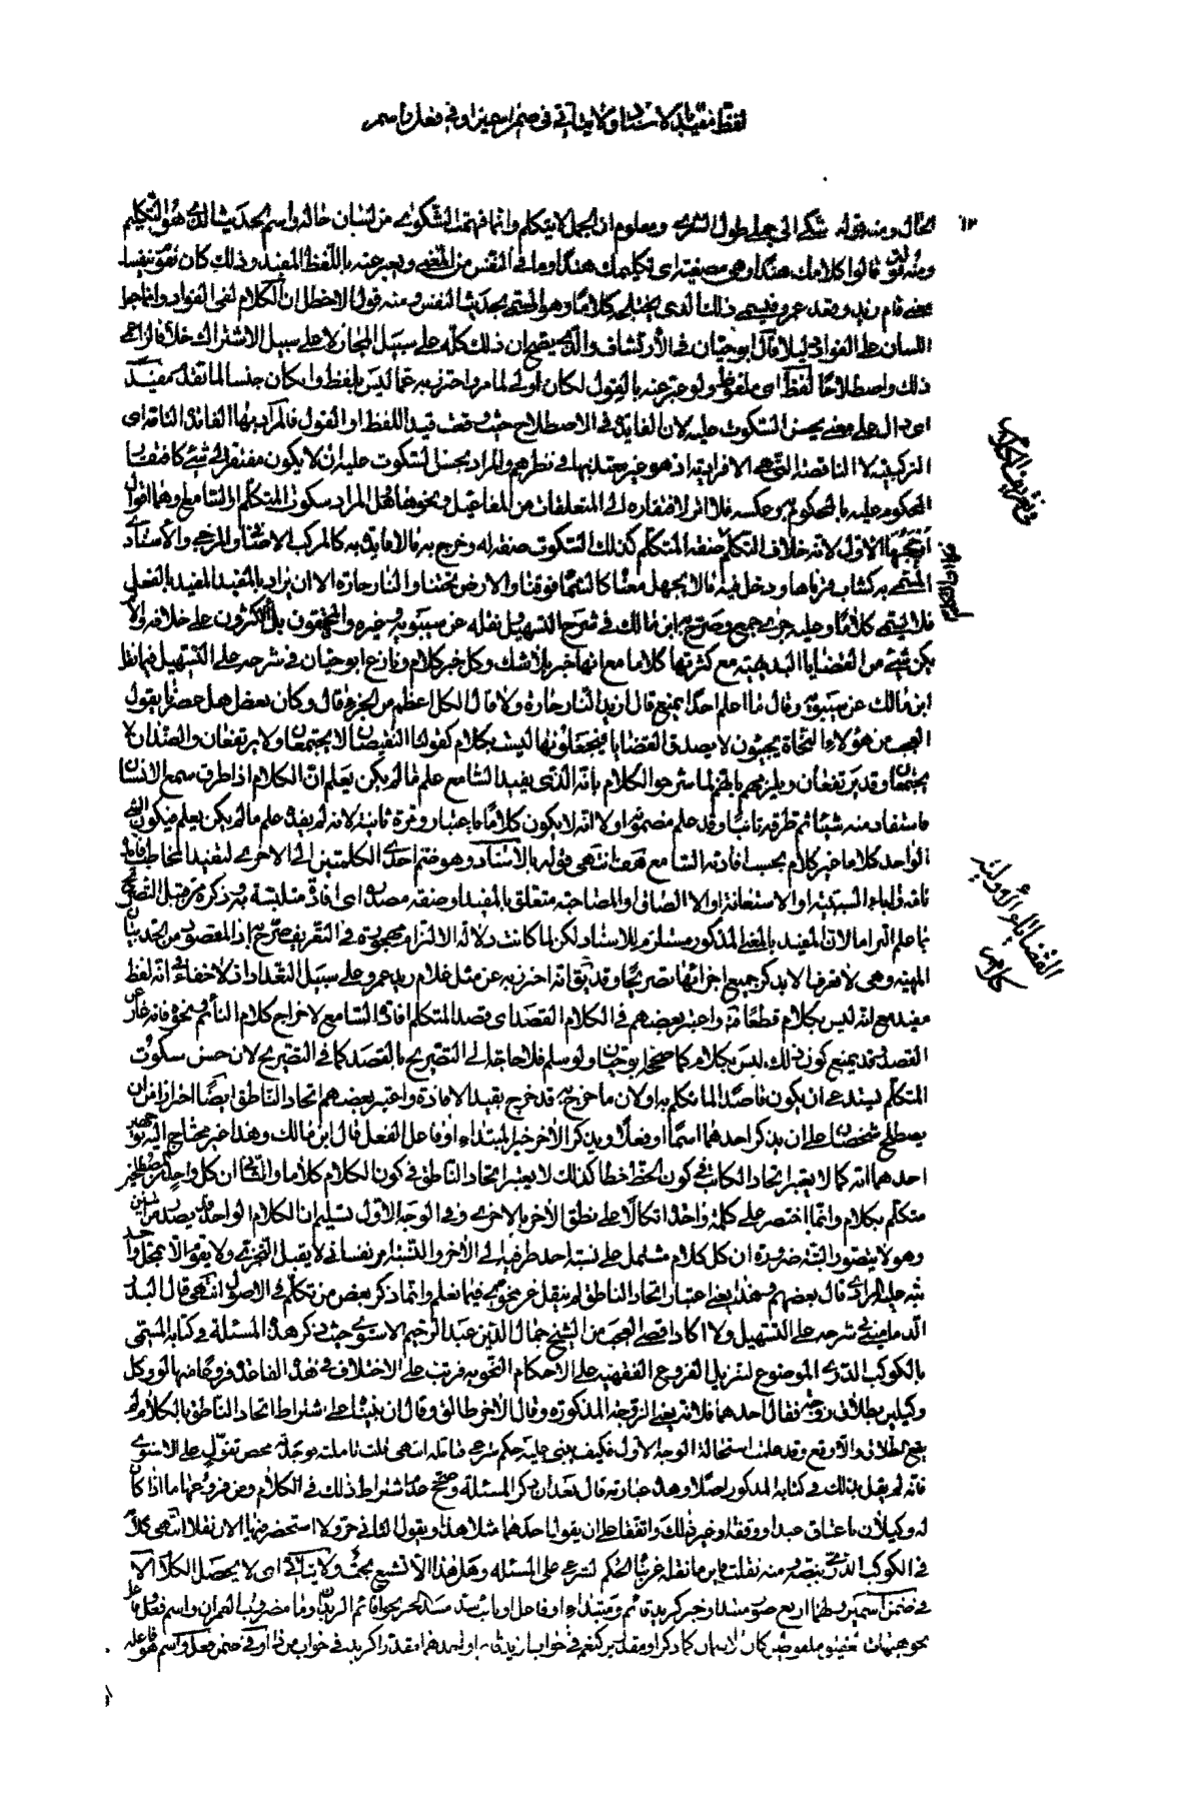 لفظ مفيد بالاسناد ولا يتاتى في ضمن اسمين او في فعل واسم
الحال ومنه قوله شكى الى جملى طول السرى ومعلوم ان الجمل لا يتكلم وانما فهمت الشكوى من لسان حاله واسم الحدث الذي هو التكليم
ومنه قوله قالوا كلامك هندا وهي مصغية اى تكليمك هندا وما في النفس من المعنى ويعبر عنه باللفظ المفيد وذلك كان تقوم بنفسك
معنى قام زيد وقعد عمرو فيسمى ذلك الذى تخيلته كلاما وهو المسمى بحديث النفس ومنه قول الاخطل ان الكلام لفى الفؤاد وانما جعل
اللسان على الفؤاد دليلا قال ابو حيان في الارتشاف والذى يصح ان ذلك كله على سبيل المجاز لا على سبيل الاشتراك خلافا لزاعمى
ذلك واصطلاحا لفظ اى ملفوظ ولو عبر عنه بالقول لكان اولى لما مر واحترز به عما ليس بلفظ وان كان جنسا لما تقدم مفيد
اى دال على معنى يحسن السكوت عليه لان الفايدة في الاصطلاح حيث وقعت قيد اللفظ او القول فالمراد بها الفائدة التامة اى
التركيبية لا الناقصة التى هي الافرادية اذ هو غير معتد بها في نظرهم والمراد بحسن السكوت عليه ان لا يكون مفتقرا الى شئ كافتقار
المحكوم عليه بالمحكوم به وعكسه فلا اثر لافتقاره الى المتعلقات من المفاعيل ونحوها وهل المراد سكوت المتكلم او السامع او هما اقوال
ارجحها الاول لانه خلاف التكلم صفة المتكلم كذلك السكوت صفة له وخرج به ما لا فايدة به كالمركب الاضافى والمزجى والاسنادى
المسمى به كشاب قرناها ودخل فيه ما لا يجهل معناه كالسماء فوقنا والارض تحتنا والنار حارة الا ان يراد بالمفيد المفيد بالفعل
فلا يسمى كلاما وعليه جرى جمع وصرح به ابن مالك في شرح التسهيل نقله عن سيبويه وغيره والمحققون بل الاكثرون على خلافه والا لم
يكن شئ من القضايا البديهية مع كثرتها كلاما مع انها خبر بلا شك وكل خبر كلام ونازع ابو حيان في شرحه على التسهيل فيما نقل
ابن مالك عن سيبويه وقال ما اعلم احدا يمنع قال زيد النار حارة ولا قال الكل اعظم من الجزء قال وكان بعض اهل عصرنا يقول
العجب من هؤلاء النحاة يجيئون لاصدق القضايا فيجعلونها ليست بكلام كقولنا النقيضان لا يجتمعان ولا يرتفعان والضدان لا
يجتمعان وقد يرتفعان ويلزمهم بالتزام ما شرحوا الكلام بانه الذى يفيد السامع علم ما لم يكن يعلم ان الكلام اذا طرق سمع الانسان
فاستفاد منه شيئا ثم طرقه ثانيا وقد علم مضمونه اولا انه لا يكون كلاما باعتبار مرة ثانية لانه لم يفد علم ما لم يكن يعلم فيكون الشئ
الواحد كلاما غير كلام بحسب افادته السامع انتهى قوله بالاسناد وهو ضم احدى الكلمتين الى الاخرى لتفيد المخاطب فائدة
تامة والباء للسببية او الاستعانة او الالصاق او المصاحبة متعلق بالمفيد او صفة مصدر اى افادة متلبسة به وذكره من قبيل التصريح
بما علم التزاما لان المفيد بالمعنى المذكور مستلزم للاسناد لكن لما كانت دلالة الالتزام مهجورة في التعريف صرح به اذ المقصود من الحد بيان
المهية وهى لا تعرف الا بذكر جميع اجزائها تصريحا وقد يق انه احترز به عن مثل غلام زيد عمرو على سبيل التعداد اذ لا خفاء في انه لفظ
مفيد مع انه ليس بكلام قطعا واعتبر بعضهم في الكلام القصد اى قصد المتكلم افادة السامع لاخراج كلام النائم ونحوه فانه عار عن
القصد وقد يمنع كون ذلك ليس بكلام كما صححه ابو حيان ولو سلم فلا حاجة الى التصريح بالقصد كما في التصريح لان حسن سكوت
المتكلم يستدعى ان يكون قاصدا لما تكلم به اولان ما خرج به قد خرج بقيد الافادة واعتبر بعضهم اتحاد الناطق ايضا احترازا من ان
يصطلح شخصان على ان يذكر احدهما اسما او فعلا ويذكر الاخر خبر المبتداء او فاعل الفعل قال ابن مالك وهذا غير محتاج اليه لوجهين
احدهما انه كما لا يعتبر اتحاد الكاتب في كون الخط خطا كذلك لا يعتبر اتحاد الناطق في كون الكلام كلاما والثانى ان كل واحد من المصطلحين
متكلم بكلام وانما اقتصر على كلمة واحدة اتكالا على نطق الاخر بالاخرى وفي الوجه الاول تسليم ان الكلام الواحد يصدر من اثنين
وهو لا يتصور البتة ضرورة ان كل كلام مشتمل على نسبة احد طرفيه الى الاخر والنسبة امر نفسانى لا يقبل التجزى ولا يقوم الا بمحل واحد
نبه عليه المرادى قال بعضهم وهذا يعنى اعتبار اتحاد الناطق لم ينقل عن نحوى فيما نعلم وانما ذكر بعض من تكلم في الاصول انتهى قال البدر
الدمامينى في شرحه على التسهيل ولا اكاد اقضى العجب من الشيخ جمال الدين عبد الرحيم الاسنوى حيث ذكر هذه المسئلة في كتابه المسمى
بالكوكب الدرى الموضوع لتنزيل الفروع الفقهية على الاحكام النحوية فرتب على الاختلاف في هذه القاعدة فروعا منها لو وكل
وكيلين بطلاق زوجته فقال احدهما فلانة يعنى الزوجة المذكورة وقال الاخر طالق وقال ان بنينا على اشتراط اتحاد الناطق بالكلام لم
يقع طلاق والا وقع وقد علمت استحالة الوجه الاول فكيف يبنى عليه حكم شرعى فتامله انتهى قلت تاملته فوجدته محض تقول على الاسنوى
فانه لم يقل بذلك في كتابه المذكور اصلا وهذه عبارته قال بعد ان ذكر المسئلة وصحح عدم اشتراط ذلك في الكلام ومن فروعها ما اذا كان
له وكيلان باعتاق عبد او وقفه او غير ذلك واتفقا على ان يقول احدهما مثلا هذا ويقول الثانى حر ولا استحضر فيها الان نقلا انتهى كلامه
في الكوكب الدرى بنصه ومنه نقلت فاين ما نقله عن بناء الحكم الشرعى على المسئلة وهل هذا الا تشنيع بحت ولا يتاتى اى لا يحصل الكلام الا
في ضمن اسمين ولهما اربع صور مبتداء وخبر كزيد قائم ومبتداء وفاعل او نائب سد مسد الخبر نحو اقائم الزيدان وما مضروب العمران واسم فعل وفاعل
نحو هيهات العقيق
١٣
في تعريف الكلام
القضايا الاولية كلام